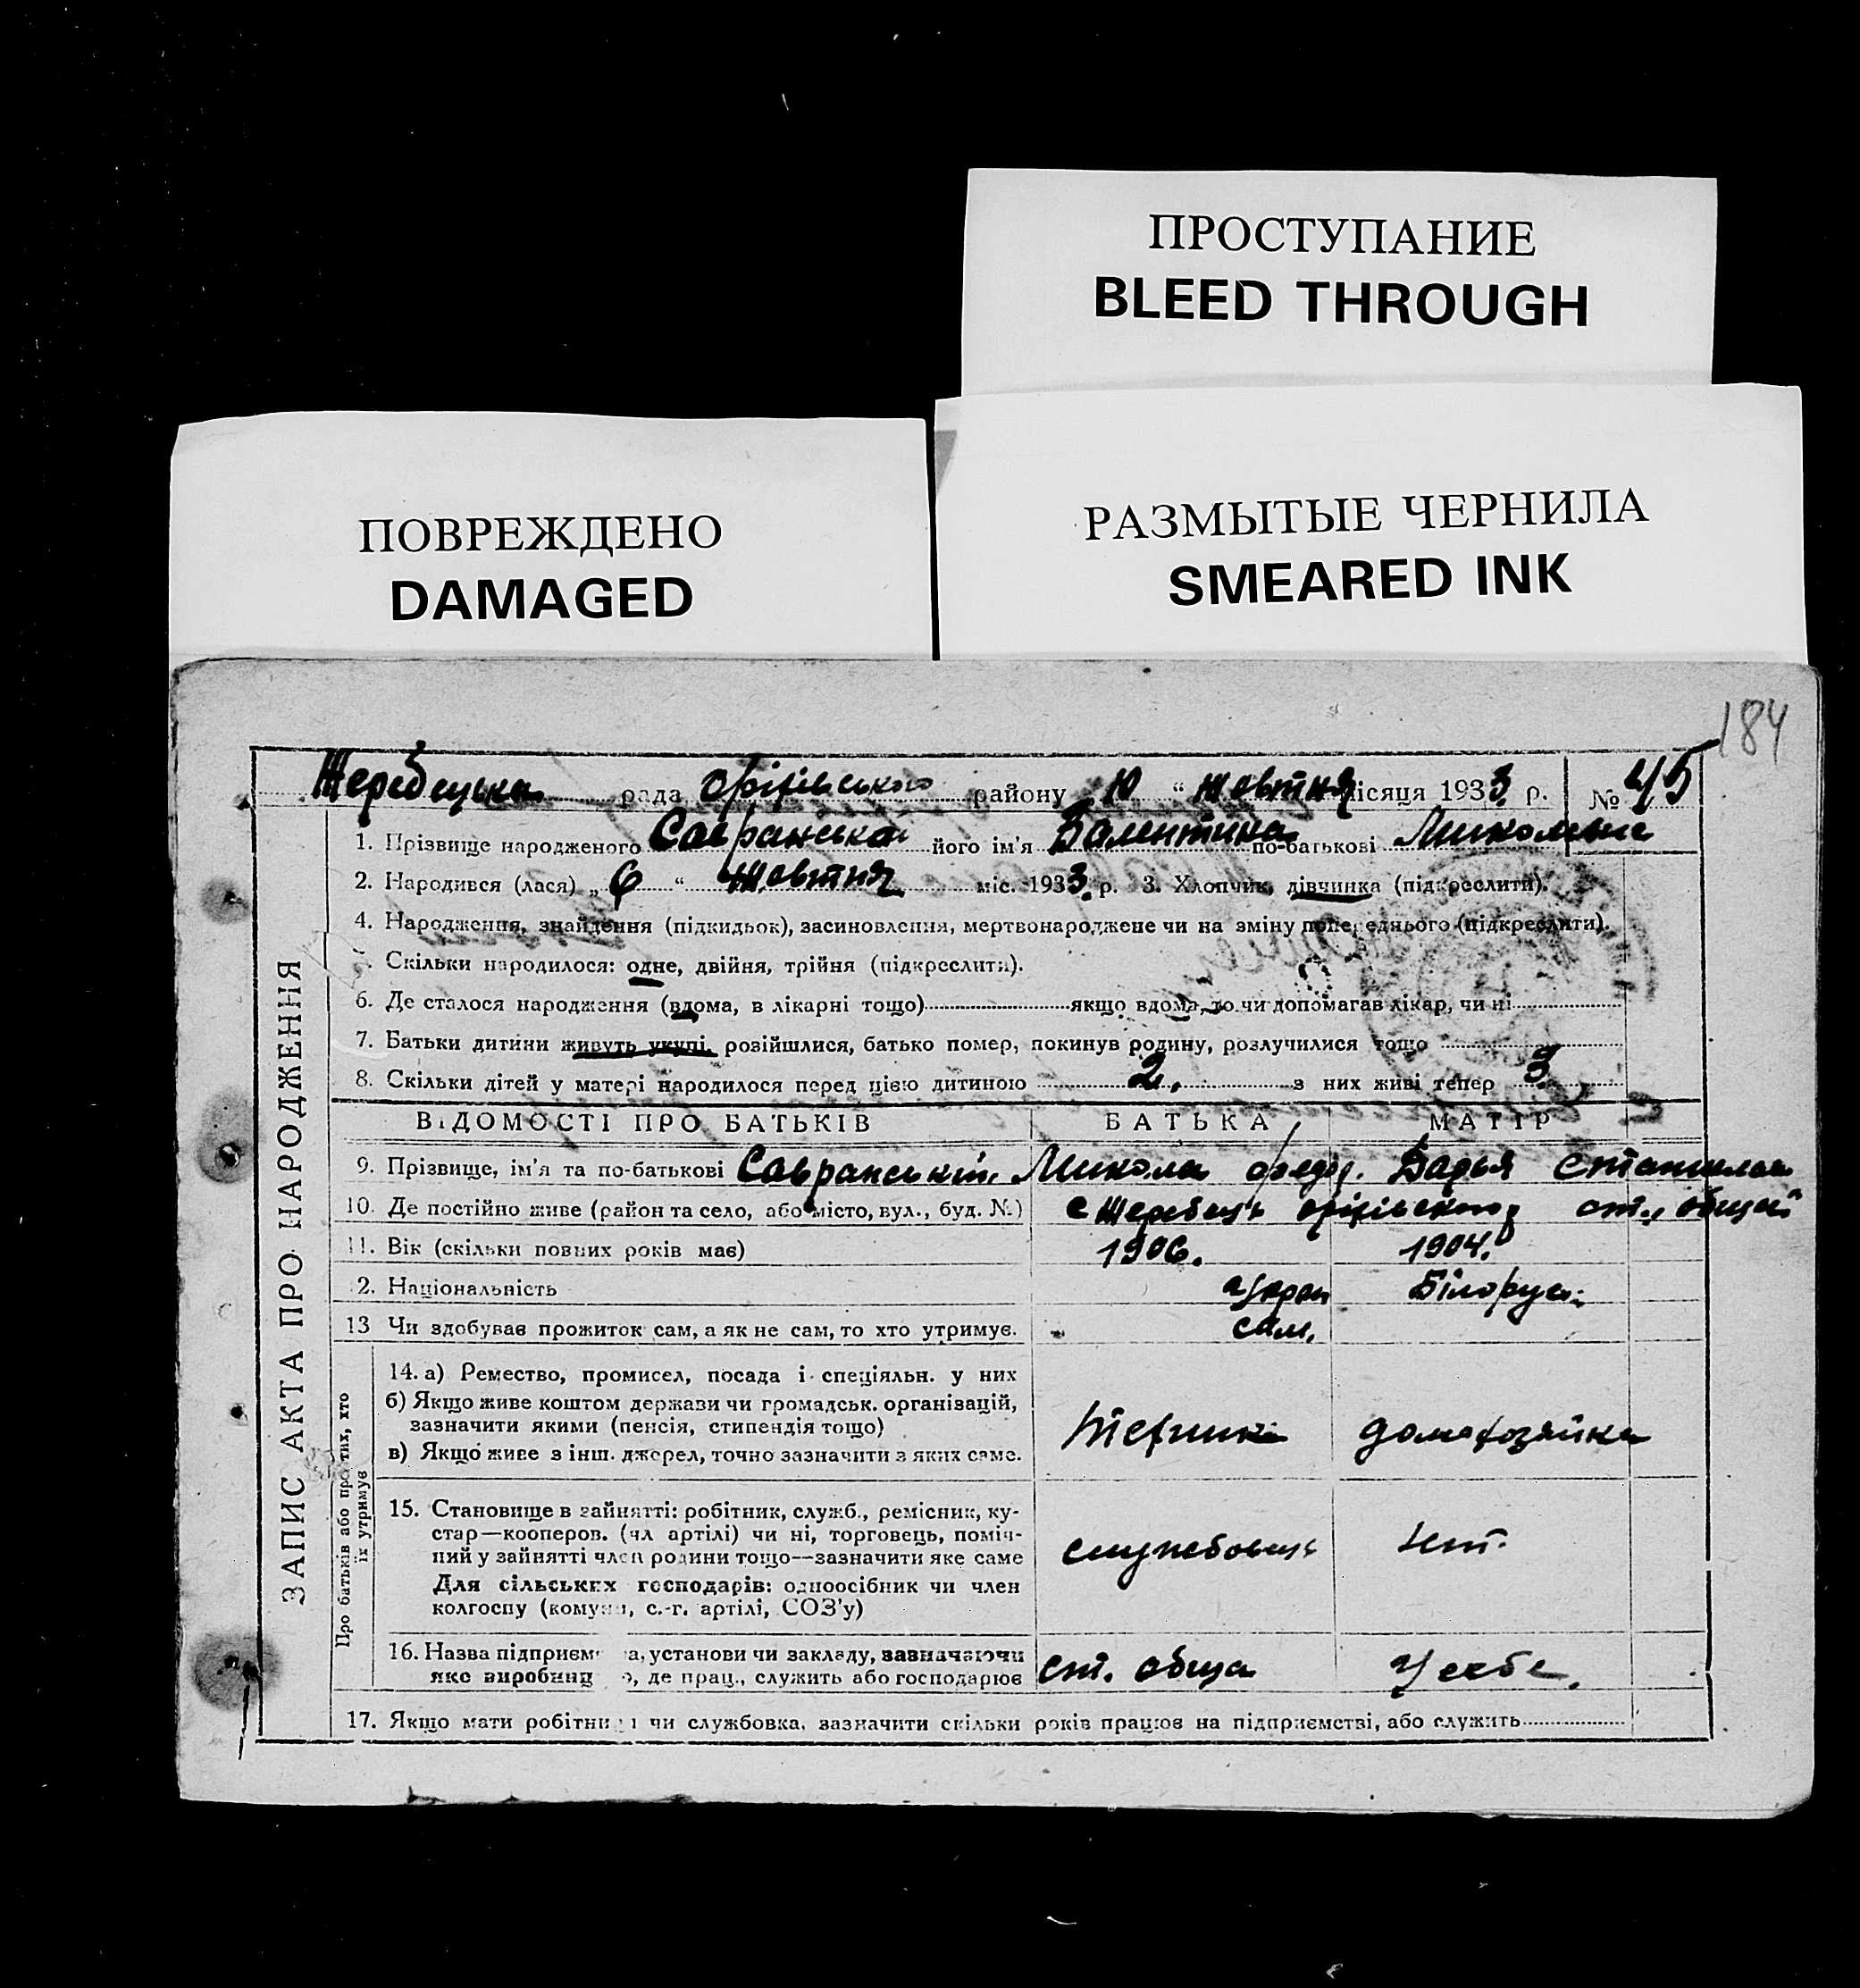 ПРОСТУПАНИЕ
BLEED THROUGH
ПОВРЕЖДЕНО
DAMAGED
РАЗМЫТЫЕ ЧЕРНИЛА
SMEARED INK
184
Жеребецька рада Оріхівського району „10“ жовтня місяця 1933 р. № 45
ЗАПИС АКТА ПРО НАРОДЖЕННЯ
1. Прізвище народженого Савранська його ім'я Валентина по-батькові
2. Народився (лася) „6“ жовтня міс. 1933 р. 3. Хлопчик, дівчинка (підкреслити).
4. Народження, знайдення (підкидьок), засиновлення, мертвонароджене чи на зміну попереднього (підкреслити).
Скільки народилося: одне, двійня, трійня (підкреслити).
6. Де сталося народження (вдома, в лікарні тощо) якщо вдома, то чи допомагав лікар, чи ні
7. Батьки дитини живуть укупі, розійшлися, батько помер, покинув родину, розлучилися тощо
8. Скільки дітей у матері народилося перед цією дитиною 2. з них живі тепер 3
ВІДОМОСТІ ПРО БАТЬКІВ БАТЬКА МАТІР
9. Прізвище, ім'я та по-батькові Савранський Микола Федор. Дарья
10. Де постійно живе (район та село, або місто, вул., буд. №) с Жеребець Оріхівського ст.
11. Вік (скільки повних років має) 1906. 1904.
2. Національність Украп Білорус.
13 Чи здобував прожиток сам, а як не сам, то хто утримує. сам.
Про батьків або про тих, хто їх утримує
14. а) Ремество, промисел, посада і спеціяльн. у них
б) Якщо живе коштом держави чи громадськ. організацій,
зазначити якими (пенсія, стипендія тощо)
в) Якщо живе з інш. джерел, точно зазначити з яких саме.
домохозяйка
15. Становище в зайнятті: робітник, служб., ремісник, ку-
стар—кооперов. (чл артілі) чи ні, торговець, поміч-
ний у зайнятті член родини тощо—зазначити яке саме
Для сільських господарів: одноосібник чи член
колгоспу (комуни, с.-г. артілі, СОЗ'у)
службовець
16. Назва підприєм а, установи чи закладу, зазначаючи
яке виробниц о, де прац., служить або господарює
ст. у себе.
17. Якщо мати робітниця чи службовка, зазначити скільки років працює на підприємстві, або служить